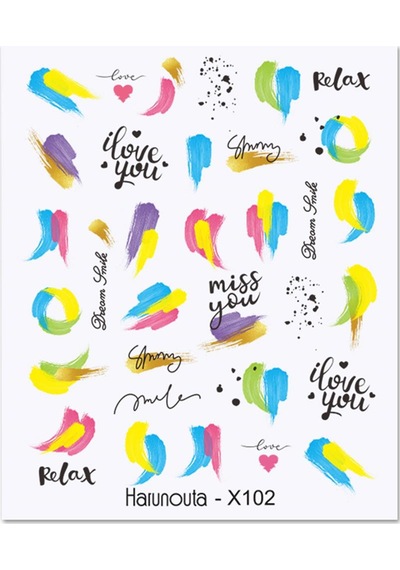 love
Relax
i love
you
Sunny
Dream Smile
Dream Smile
miss
you
Sunny
i love
you
smile
love
Relax
Harunouta - X102